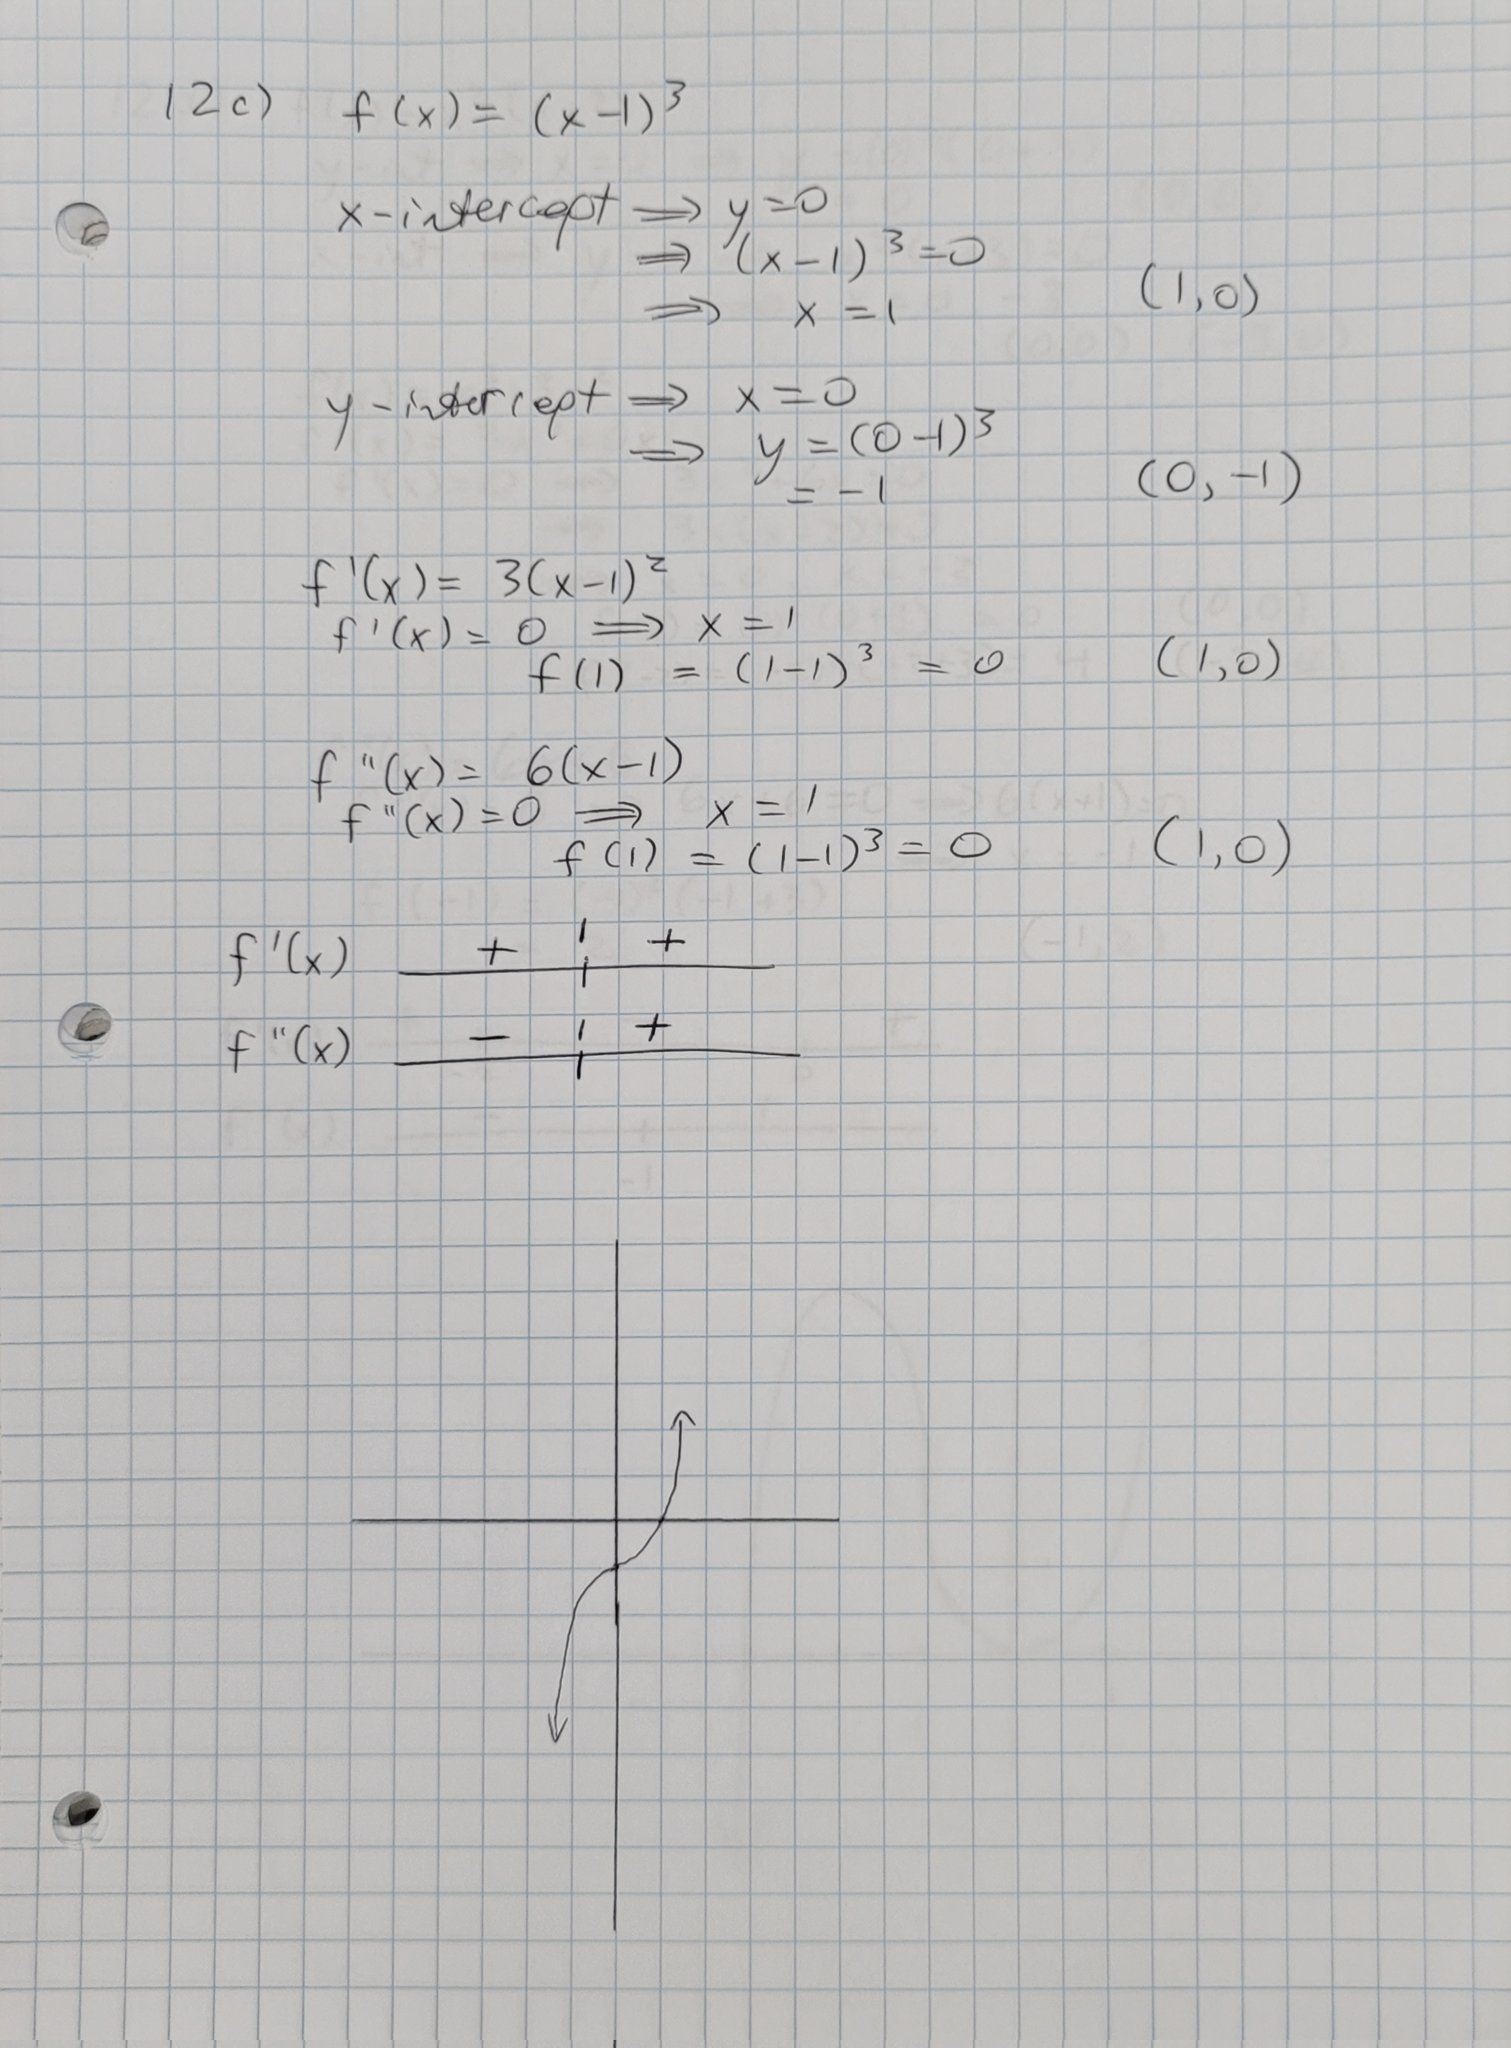 12c) f(x) = (x-1)³
x-intercept ⟹ y=0
⟹ (x-1)³=0
⟹ x=1 (1,0)
y-intercept ⟹ x=0
⟹ y=(0-1)³
= -1 (0,-1)
f'(x) = 3(x-1)²
f'(x) = 0 ⟹ x=1
f(1) = (1-1)³ = 0 (1,0)
f"(x) = 6(x-1)
f"(x) = 0 ⟹ x=1
f(1) = (1-1)³ = 0 (1,0)
f'(x) + 1 +
f"(x) - 1 +